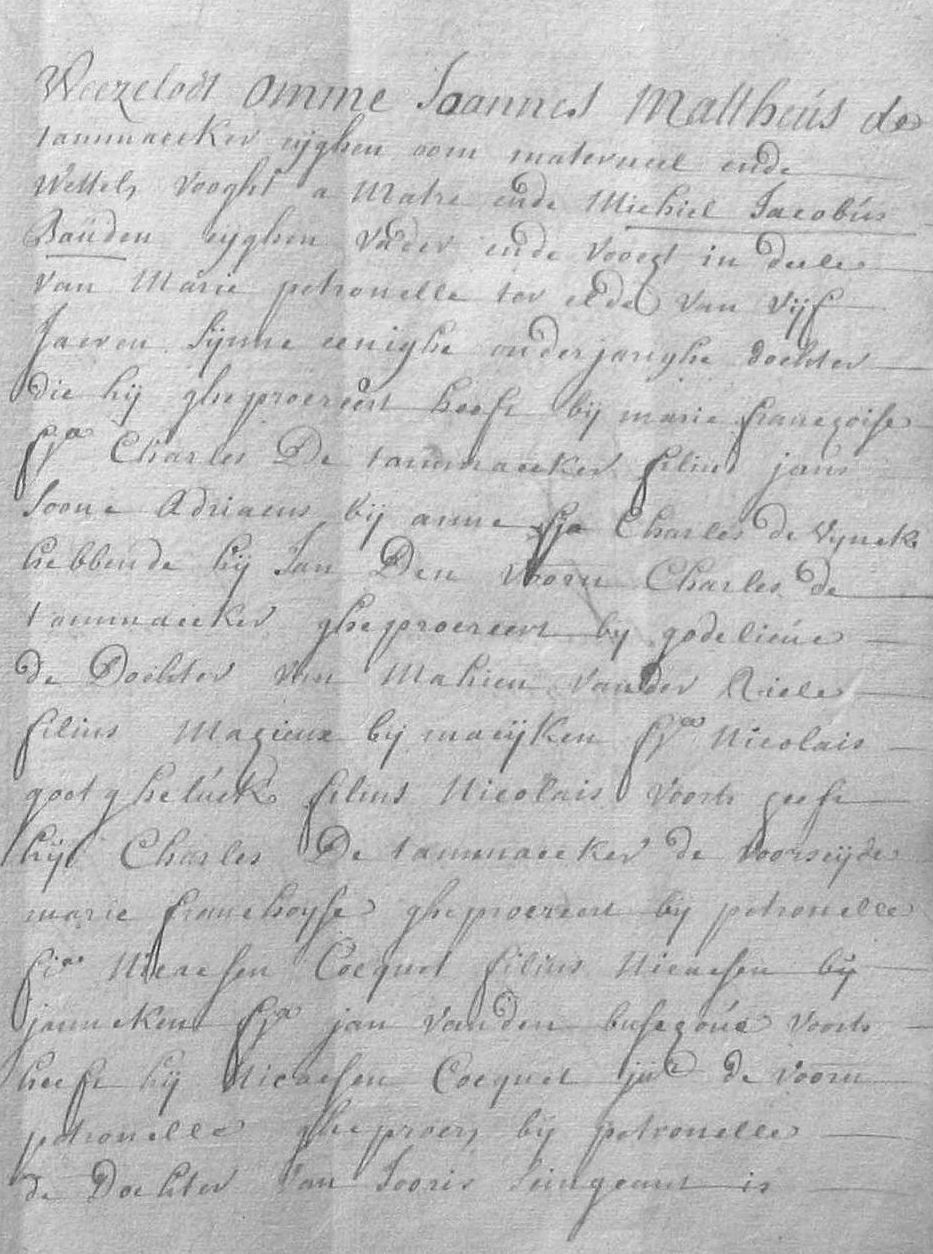 Weezelodt omme Joannes Mattheus de
tammaecker eyghen oom materneel ende
Wettels Vooght a Matre ende Michiel Jacobus
Bauden eyghen Vader ende Voogt in deele
van Marie petronelle tor elde van vijf
Jaeren Sijnne eenighe onderjaeighe dochter
die hij gheprocreert heeft bij marie francçoise
fa Charles De tammaecker filius jans
Soone Adriaens bij anne fa Charles de Vynck
hebbende hij Jan Den Voorn Charles de
tammaecker gheprocreert by godelieue
de Dochter van Mahieu vander Riele
filius Magieux bij maeijken fa Nicolais
goet ghelúck filius Nicolais Voorts heeft
hij Charles De tammaecker de voorseijde
marie franchoyse gheprocreert bij petronelle
fia Nicaesen Cocquet filius Nicaesen bij
janneken fa jan vanden busegoúe voorts
heeft hij Nicaesen Cocquet de voorn
petronelle gheprocr, bij petronelle
de Dochter van Jooris is